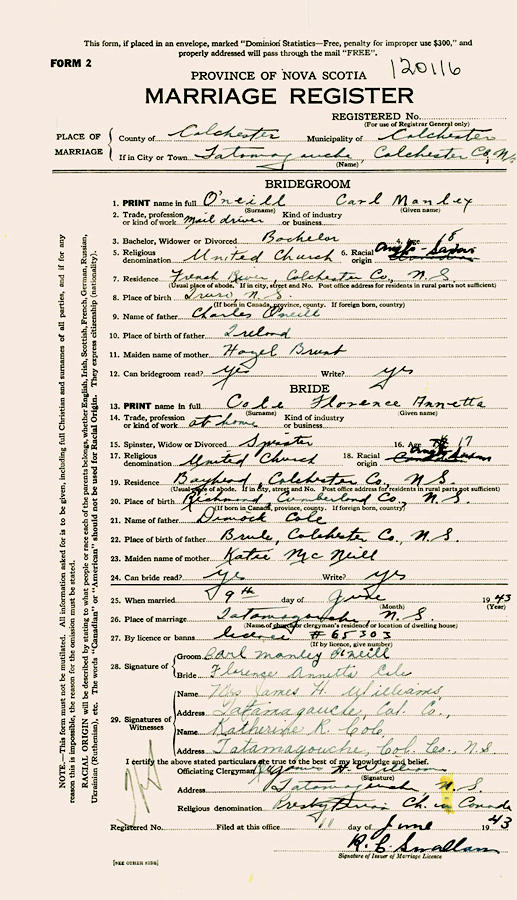 This form, if placed in an envelope, marked "Dominion Statistics—Free, penalty for improper use $300," and
properly addressed will pass through the mail "FREE".
FORM 2
120116
PROVINCE OF NOVA SCOTIA
MARRIAGE REGISTER
REGISTERED No.
(For use of Registrar General only)
PLACE OF MARRIAGE
County of Colchester Municipality of Colchester
If in City or Town Tatamagouche, Colchester Co, N.S.
(Name)
BRIDEGROOM
1. PRINT name in full O'neill Carl Manley
(Surname) (Given name)
2. Trade, profession or kind of work mail driver Kind of industry or business
3. Bachelor, Widower or Divorced Bachelor 4. Age 18
5. Religious denomination United Church 6. Racial origin Anglo-Saxon
7. Residence French River, Colchester Co., N.S.
(Usual place of abode. If in city, street and No. Post office address for residents in rural parts not sufficient)
8. Place of birth Truro N.S.
(If born in Canada, province, county. If foreign born, country)
9. Name of father Charles O'neill
10. Place of birth of father Ireland
11. Maiden name of mother Hazel Brunt
12. Can bridegroom read? yes Write? yes
BRIDE
13. PRINT name in full Cole Florence Annetta
(Surname) (Given name)
14. Trade, profession or kind of work at home Kind of industry or business
15. Spinster, Widow or Divorced Spinster 16. Age 17
17. Religious denomination United Church 18. Racial origin
19. Residence Bayhead, Colchester Co., N.S.
(Usual place of abode. If in city, street and No. Post office address for residents in rural parts not sufficient)
20. Place of birth Richmond Cumberland Co., N.S.
(If born in Canada, province, county. If foreign born, country)
21. Name of father Dimock Cole
22. Place of birth of father Brule, Colchester Co., N.S.
23. Maiden name of mother Katie McNeill
24. Can bride read? yes Write? yes
25. When married 9th day of June 1943
(Month) (Year)
26. Place of marriage Tatamagouche N.S.
(Name of church or clergyman's residence or location of dwelling house)
27. By licence or banns licence # 65303
(If by licence, give number)
28. Signature of
Groom Carl Manley O'neill
Bride Florence Annetta Cole
29. Signatures of Witnesses
Name Mrs James H. Williams,
Address Tatamagouche, Col. Co.,
Name Katherine R. Cole,
Address Tatamagouche, Col. Co. N.S.
I certify the above stated particulars are true to the best of my knowledge and belief.
Officiating Clergyman James H. Williams
(Signature)
Address Tatamagouche N.S.
Religious denomination Presbyterian Ch. in Canada
Registered No. Filed at this office 11 day of June 1943
R. C.
Signature of Issuer of Marriage Licence
[SEE OTHER SIDE]
NOTE.—This form must not be mutilated. All information asked for is to be given, including full Christian and surnames of all parties, and if for any
reason this is impossible, the reason for the omission must be stated.
RACIAL ORIGIN will be described by stating to what people or race each of the parents belongs, whether English, Irish, Scottish, French, German, Russian,
Ukrainian (Ruthenian), etc. The words "Canadian" or "American" should not be used for Racial Origin. They express citizenship (nationality).